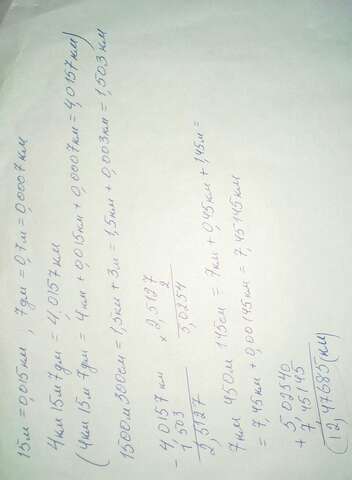 15м = 0,015км , 7дм = 0,7м = 0,0007км
4км 15м 7дм = 4,0157км
(4км 15м 7дм = 4км + 0,015км + 0,0007км = 4,0157км)
1500м 300см = 1,5км + 3м = 1,5км + 0,003км = 1,503км
- 4,0157км
1,503
2,5127
× 2,5127
2
5,0254
7км 450м 145см = 7км + 0,45км + 1,45м =
= 7,45км + 0,00145км = 7,45145км
+ 5,02540
7,45145
(12,47685(км)